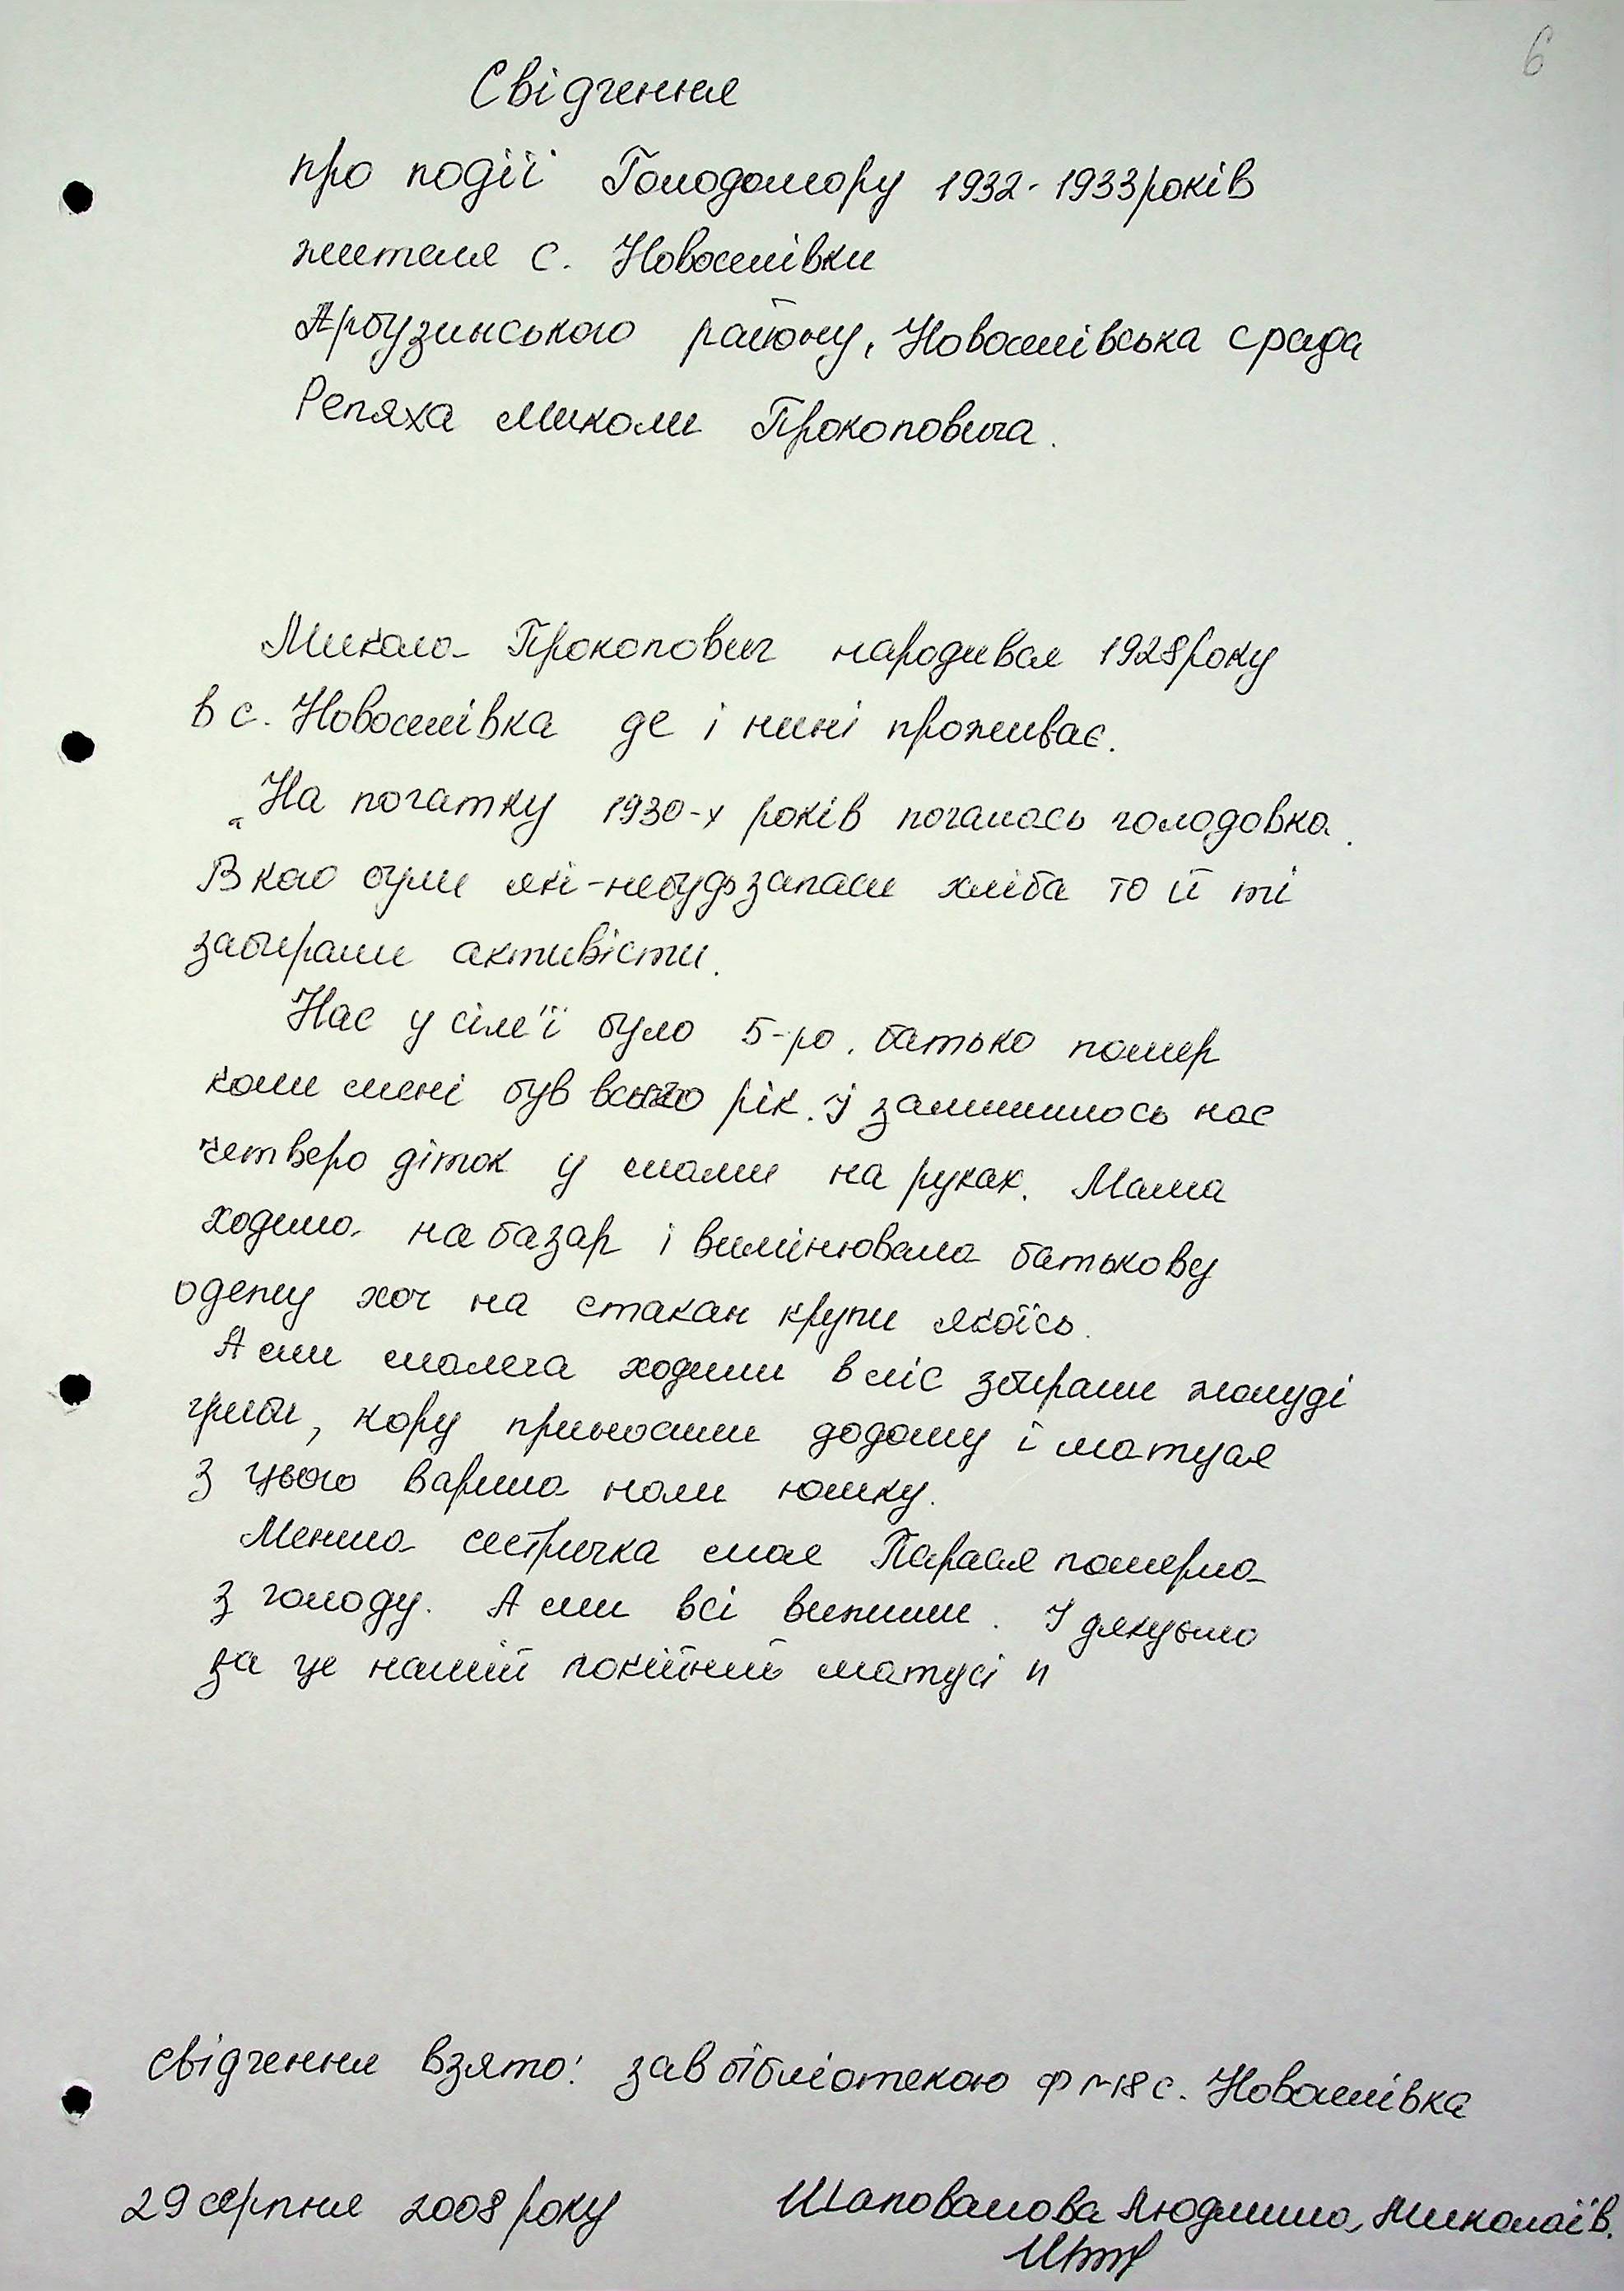 6
Свідчення
про події Голодомору 1932-1933 років
жителя с. Новоселівки
Арбузинського району, Новоселівська с рада
Репяха Миколи Прокоповича.
Микола Прокопович народився 1928 року
в с. Новоселівка де і нині проживає.
"На початку 1930-х років почалась голодовка.
В кого були які-небудь запаси хліба то й ті
забирали активісти.
Нас у сім'ї було 5-ро. батько помер
коли мені був всього рік. І залишилось нас
четверо діток у мами на руках. Мама
ходила на базар і вимінювала батькову
одежу хоч на стакан крупи якоїсь.
А ми малеча ходили в ліс збирали жолуді
гриби, кору приносили додому і матуся
з цього варила нам юшку.
Менша сестричка моя Парася померла
з голоду. А ми всі вижили. І дякуємо
за це нашій покійній матусі"
Свідчення взято: зав бібліотекою ф №18 с. Новоселівка
29 серпня 2008 року Шаповалова Людмила Миколаїв.